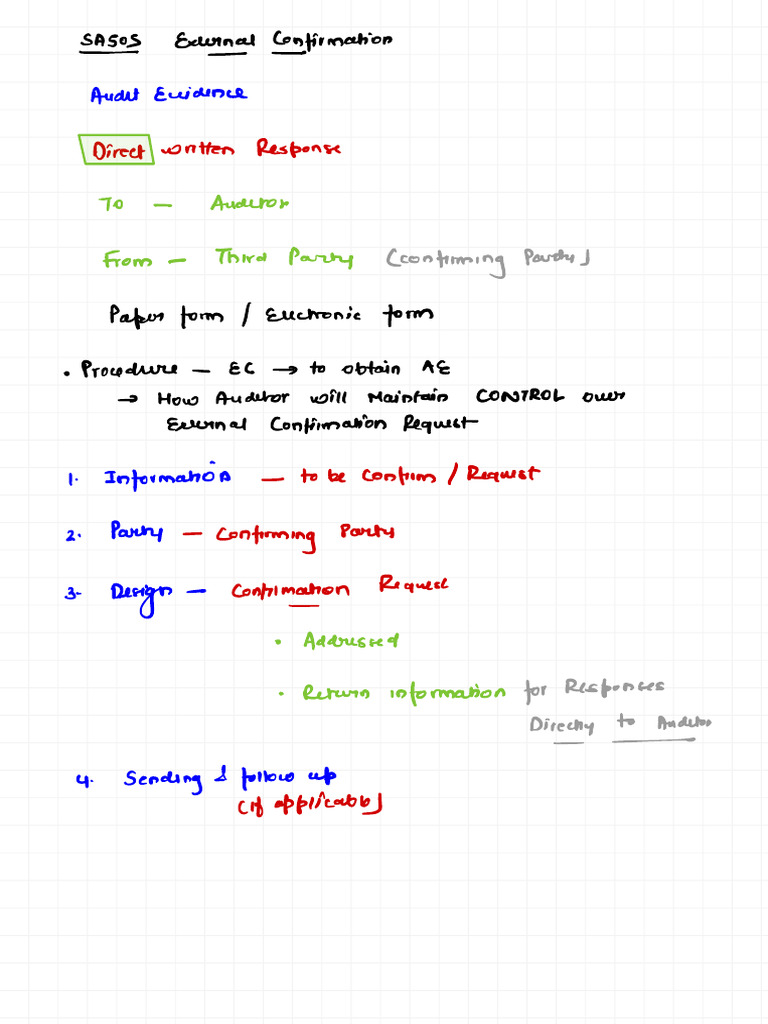 SA505 External Confirmation
Audit Evidence
Direct written Response
To — Auditor
From — Third Party (confirming Party)
Paper form / Electronic form
• Procedure — EC → to obtain AE
→ How Auditor will Maintain CONTROL over
External Confirmation Request
1. Information — to be Confirm / Request
2. Party — Confirming Party
3. Design — Confirmation Request
• Addressed
• Return information for Responses
Directly to Auditor
4. Sending & follow up
(if applicable)